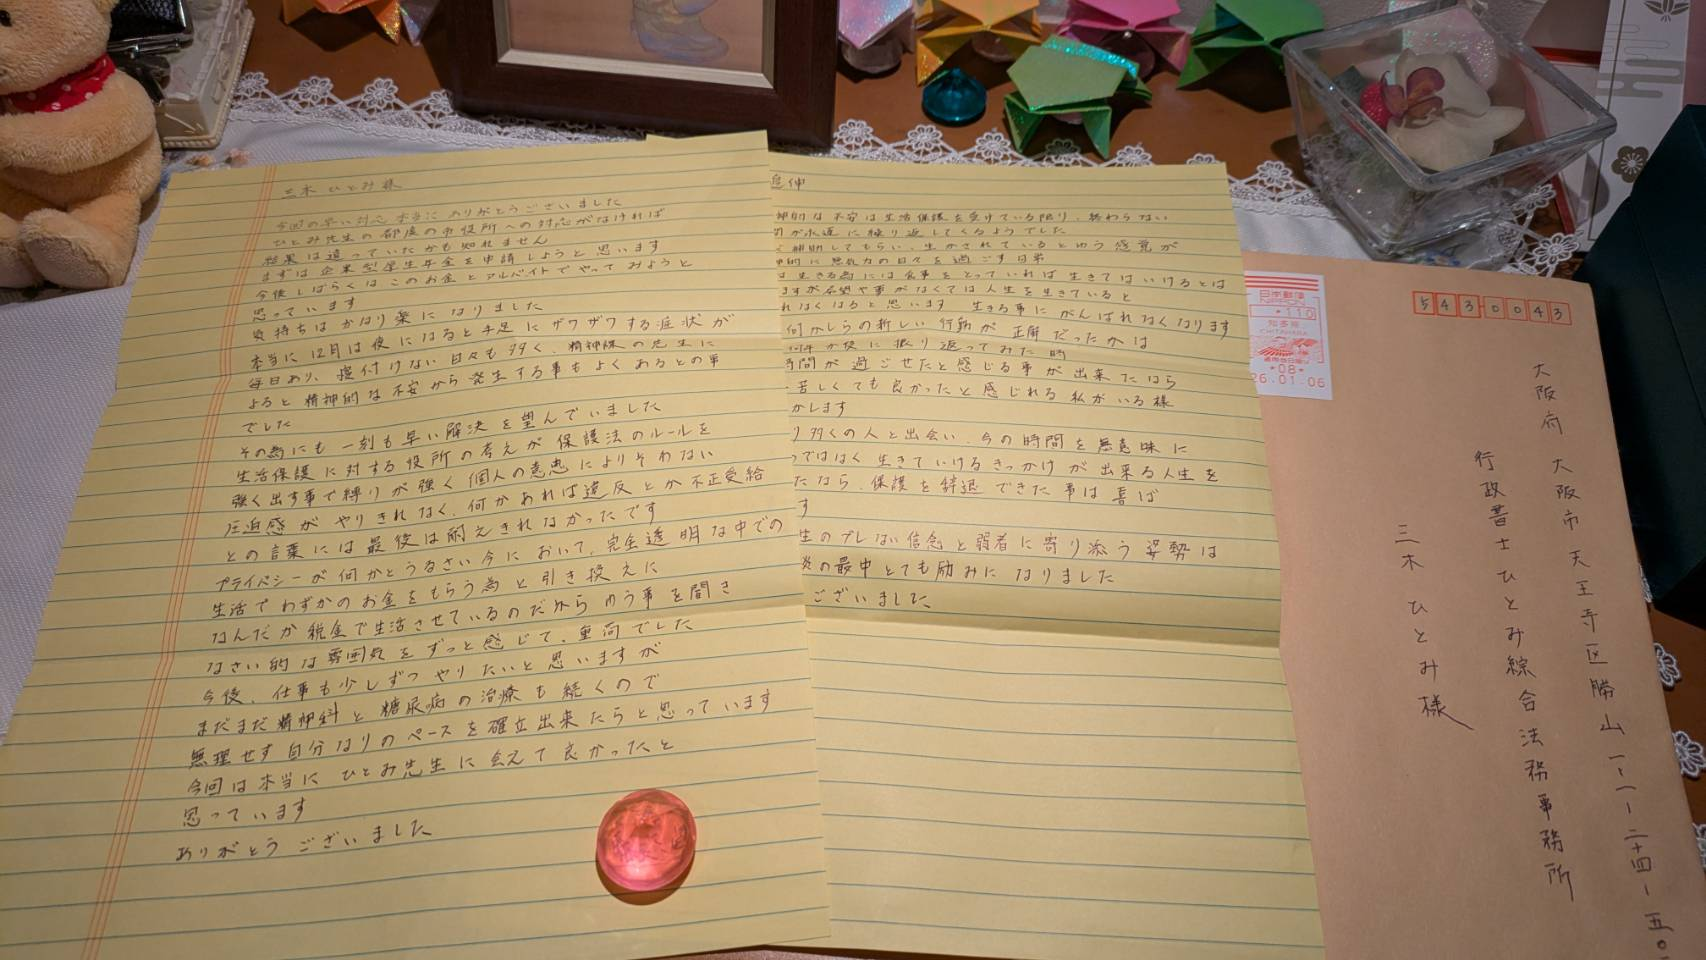 三木 ひとみ様
今回の早い対応 本当に ありがとうございました
ひとみ先生の都度の市役所への対応がなければ
結果は違っていたかも知れません
まずは企業型厚生年金を申請しようと思います
今後しばらくはこのお金とアルバイトでやってみようと
思っています
気持ちはかなり楽になりました
本当に12月は夜になると手足にザワザワする症状が
毎日あり、寝付けない日々も多く、精神科の先生に
よると精神的な不安から発生する事もよくあるとの事
でした
その為にも一刻も早い解決を望んでいました
生活保護に対する役所の考えが保護法のルールを
強く出す事で縛りが強く個人の意思によりそわない
圧迫感がやりきれなく、何かあれば違反とか不正受給
との言葉には最後は耐えきれなかったです
プライバシーが何かとうるさい今において、完全透明な中での
生活でわずかのお金をもらう為と引き換えに
なんだか税金で生活させているのだからゆう事を聞き
なさい的な雰囲気をずっと感じて、重荷でした
今後、仕事も少しずつやりたいと思いますが
まだまだ精神科と糖尿病の治療も続くので
無理せず自分なりのペースを確立出来たらと思っています
今回は本当にひとみ先生に会えて良かったと
思っています
ありがとうございました
追伸
神的な不安は生活保護を受けている限り、終わらない
が永遠に繰り返してくるようでした
補助してもらい、生かされているとゆう感覚が
神的に無気力の日々を過ごす日常
生きる為には食事をとっていれば生きてはいけるとは
ますが希望や夢がなくては人生を生きていると
れなくなると思います 生きる事にがんばれなくなります
何かしらの新しい行動が正解だったかは
何年か後に振り返ってみた時
時間が過ごせたと感じる事が出来たなら
苦しくても良かったと感じれる私がいる様
がします
り多くの人と出会い、今の時間を無意味に
ではなく生きていけるきっかけが出来る人生を
たなら、保護を辞退できた事は喜ば
す
生のブレない信念と弱者に寄り添う姿勢は
の最中とても励みになりました
ございました
日本郵便
NIPPON
110
知多旭
CHITAASAHI
08
26.01.06
543-0043
大阪府大阪市天王寺区勝山
行政書士ひとみ綜合法務事務所
三木ひとみ様